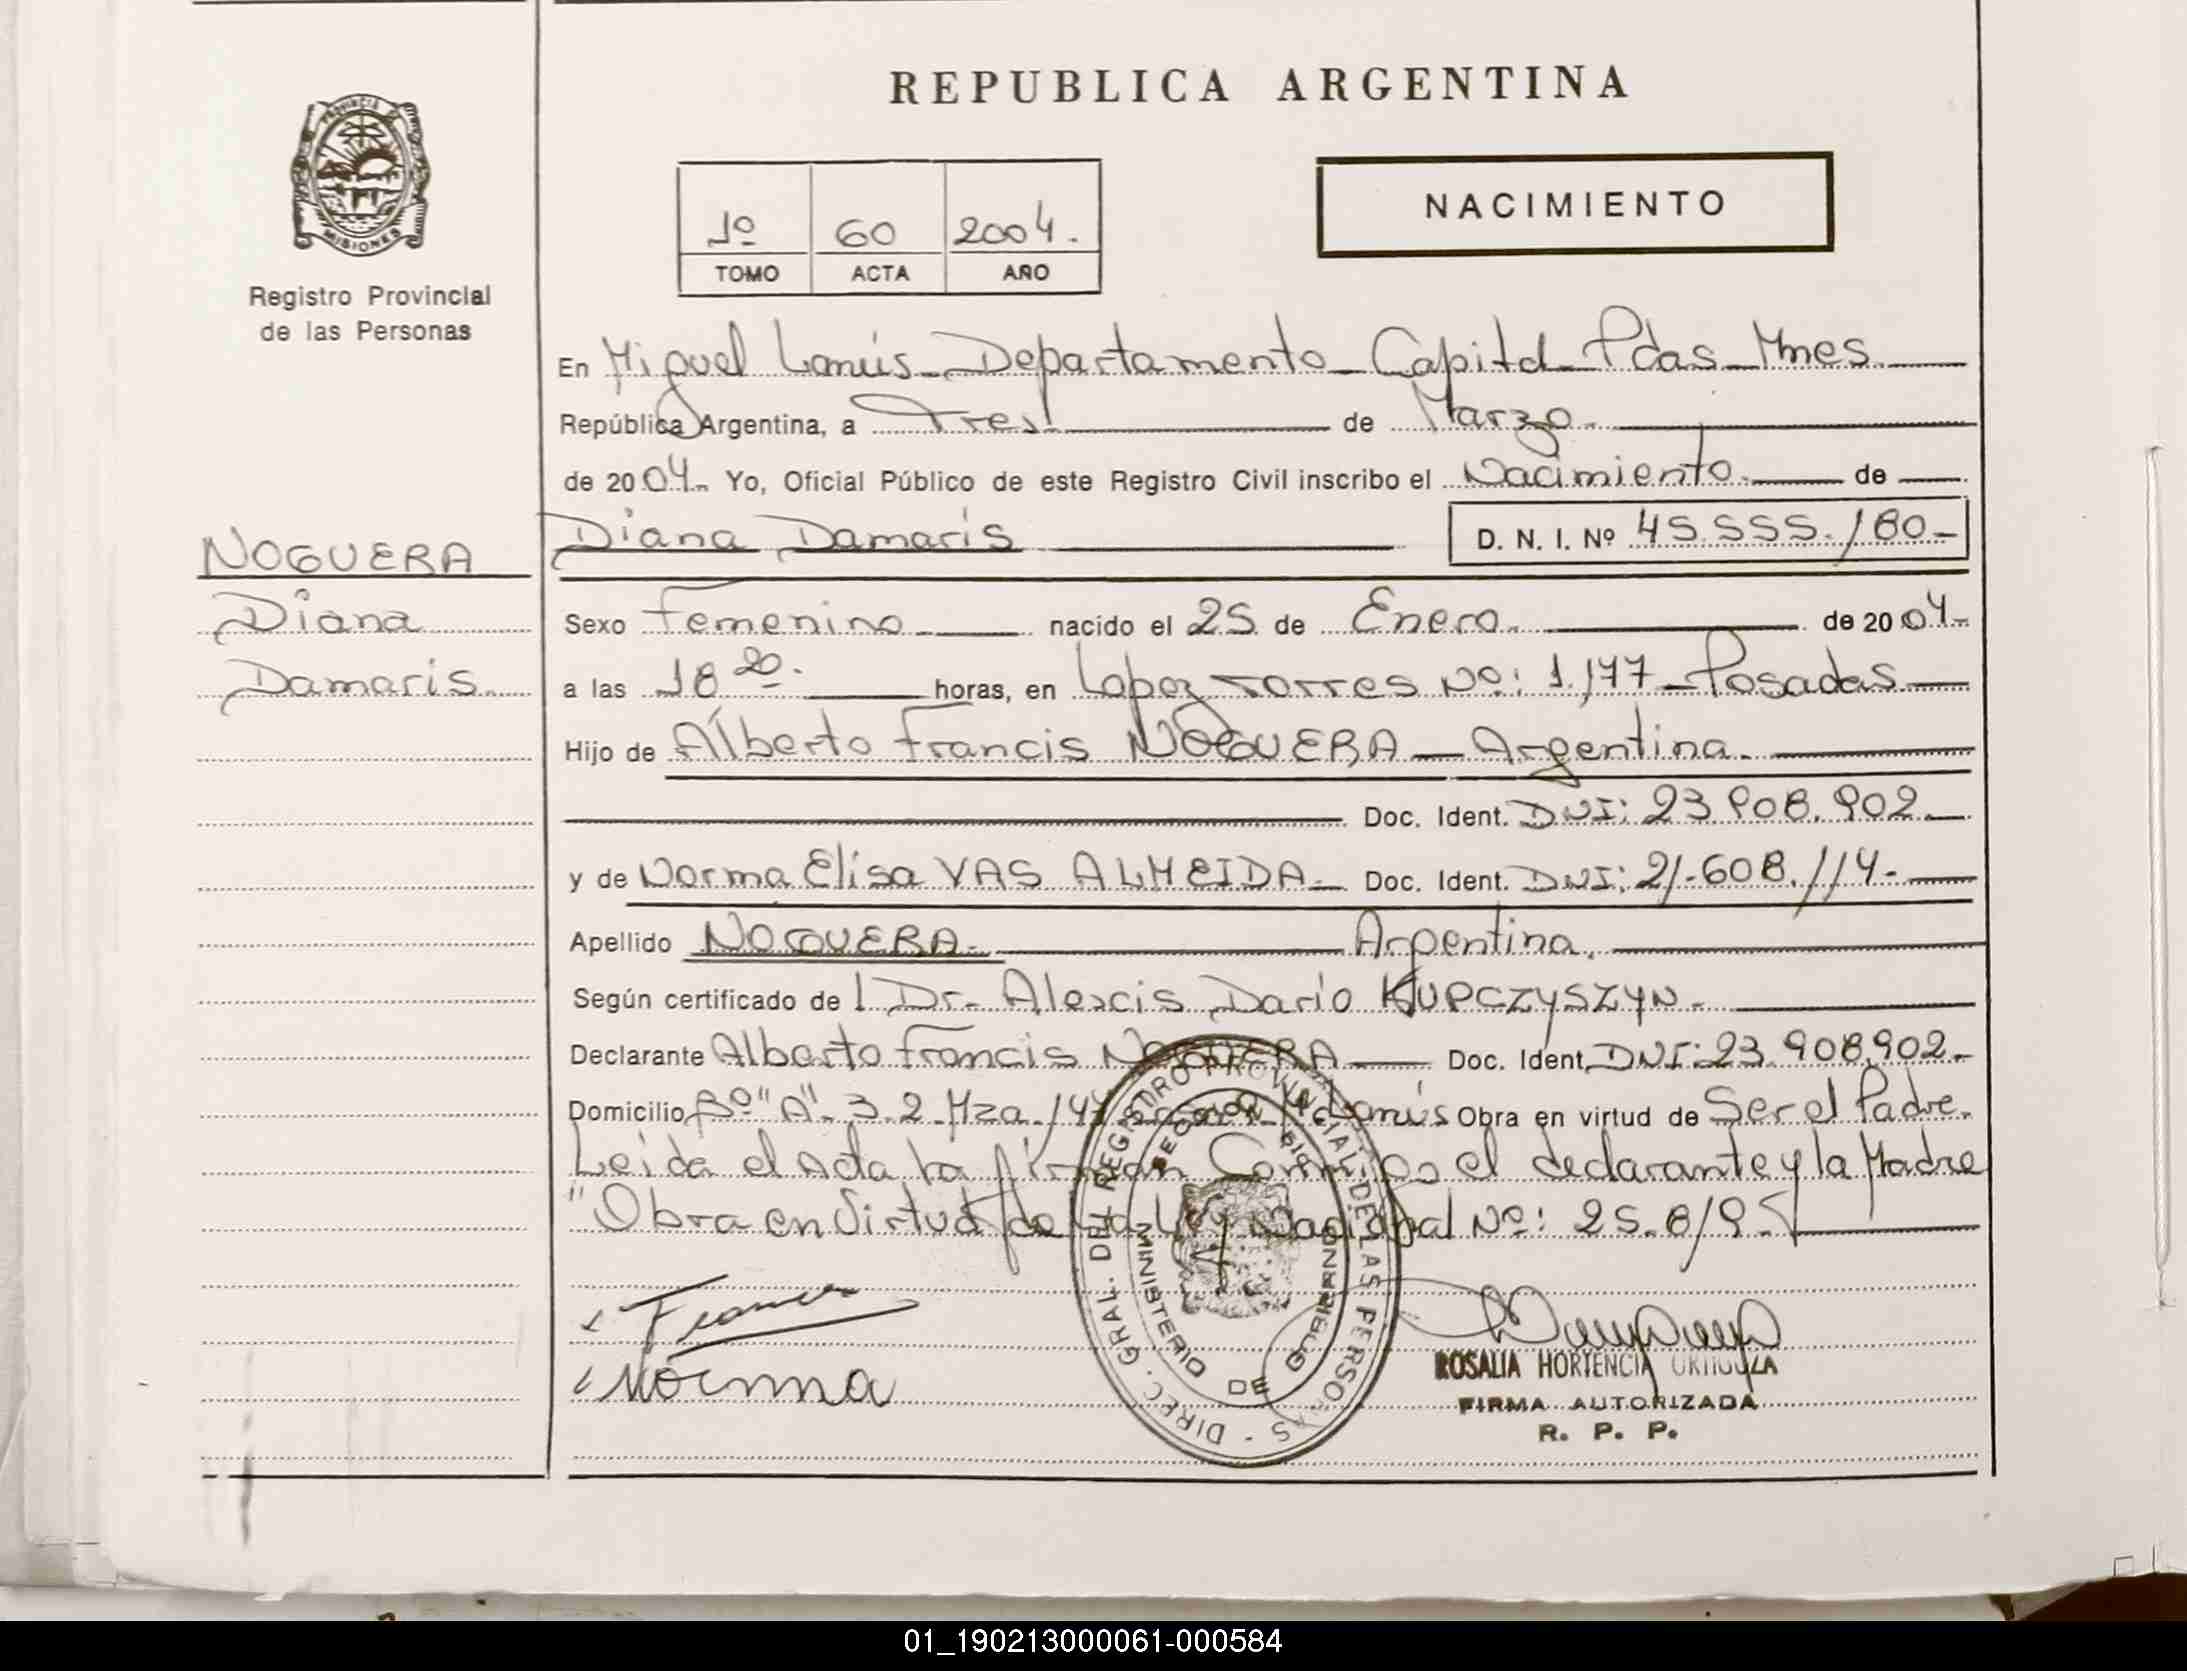 REPUBLICA ARGENTINA
PROVINCIA DE MISIONES
Registro Provincial
de las Personas
1º 60 2004.
TOMO ACTA AÑO
NACIMIENTO
En Miguel Lanús - Departamento - Capital - Pdas - Mnes.
República Argentina, a Tres de Marzo.
de 2004. Yo, Oficial Público de este Registro Civil inscribo el Nacimiento. de
Diana Damaris D. N. I. Nº 45.555.180-
NOGUERA
Diana
Damaris.
Sexo Femenino nacido el 25 de Enero. de 2004-
a las 18 20. horas, en Lopez Torres Nº: 1.177 - Posadas
Hijo de Alberto Francis NOGUERA - Argentina.
Doc. Ident. DNI: 23.908.902.
y de Norma Elisa VAS ALMEIDA - Doc. Ident. DNI: 21.608.114.
Apellido NOGUERA. Argentina.
Según certificado de Dr. Alexcis Dario KUPCZYSZYN.
Declarante Alberto Francis NOGUERA Doc. Ident. DNI: 23.908.902-
Domicilio Bº "A" 3.2 Mza. Lanús Obra en virtud de Ser el Padre.
Leida el Acta la firman Conmigo el declarante y la Madre
"Obra en Virtud de la Ley Nacional Nº: 25.819.
Norma
DIREC. GRAL. DEL REGISTRO PROVINCIAL DE LAS PERSONAS -
MINISTERIO DE GOBIERNO
ROSALIA HORTENCIA ORTIGOZA
FIRMA AUTORIZADA
R. P. P.
01_190213000061-000584